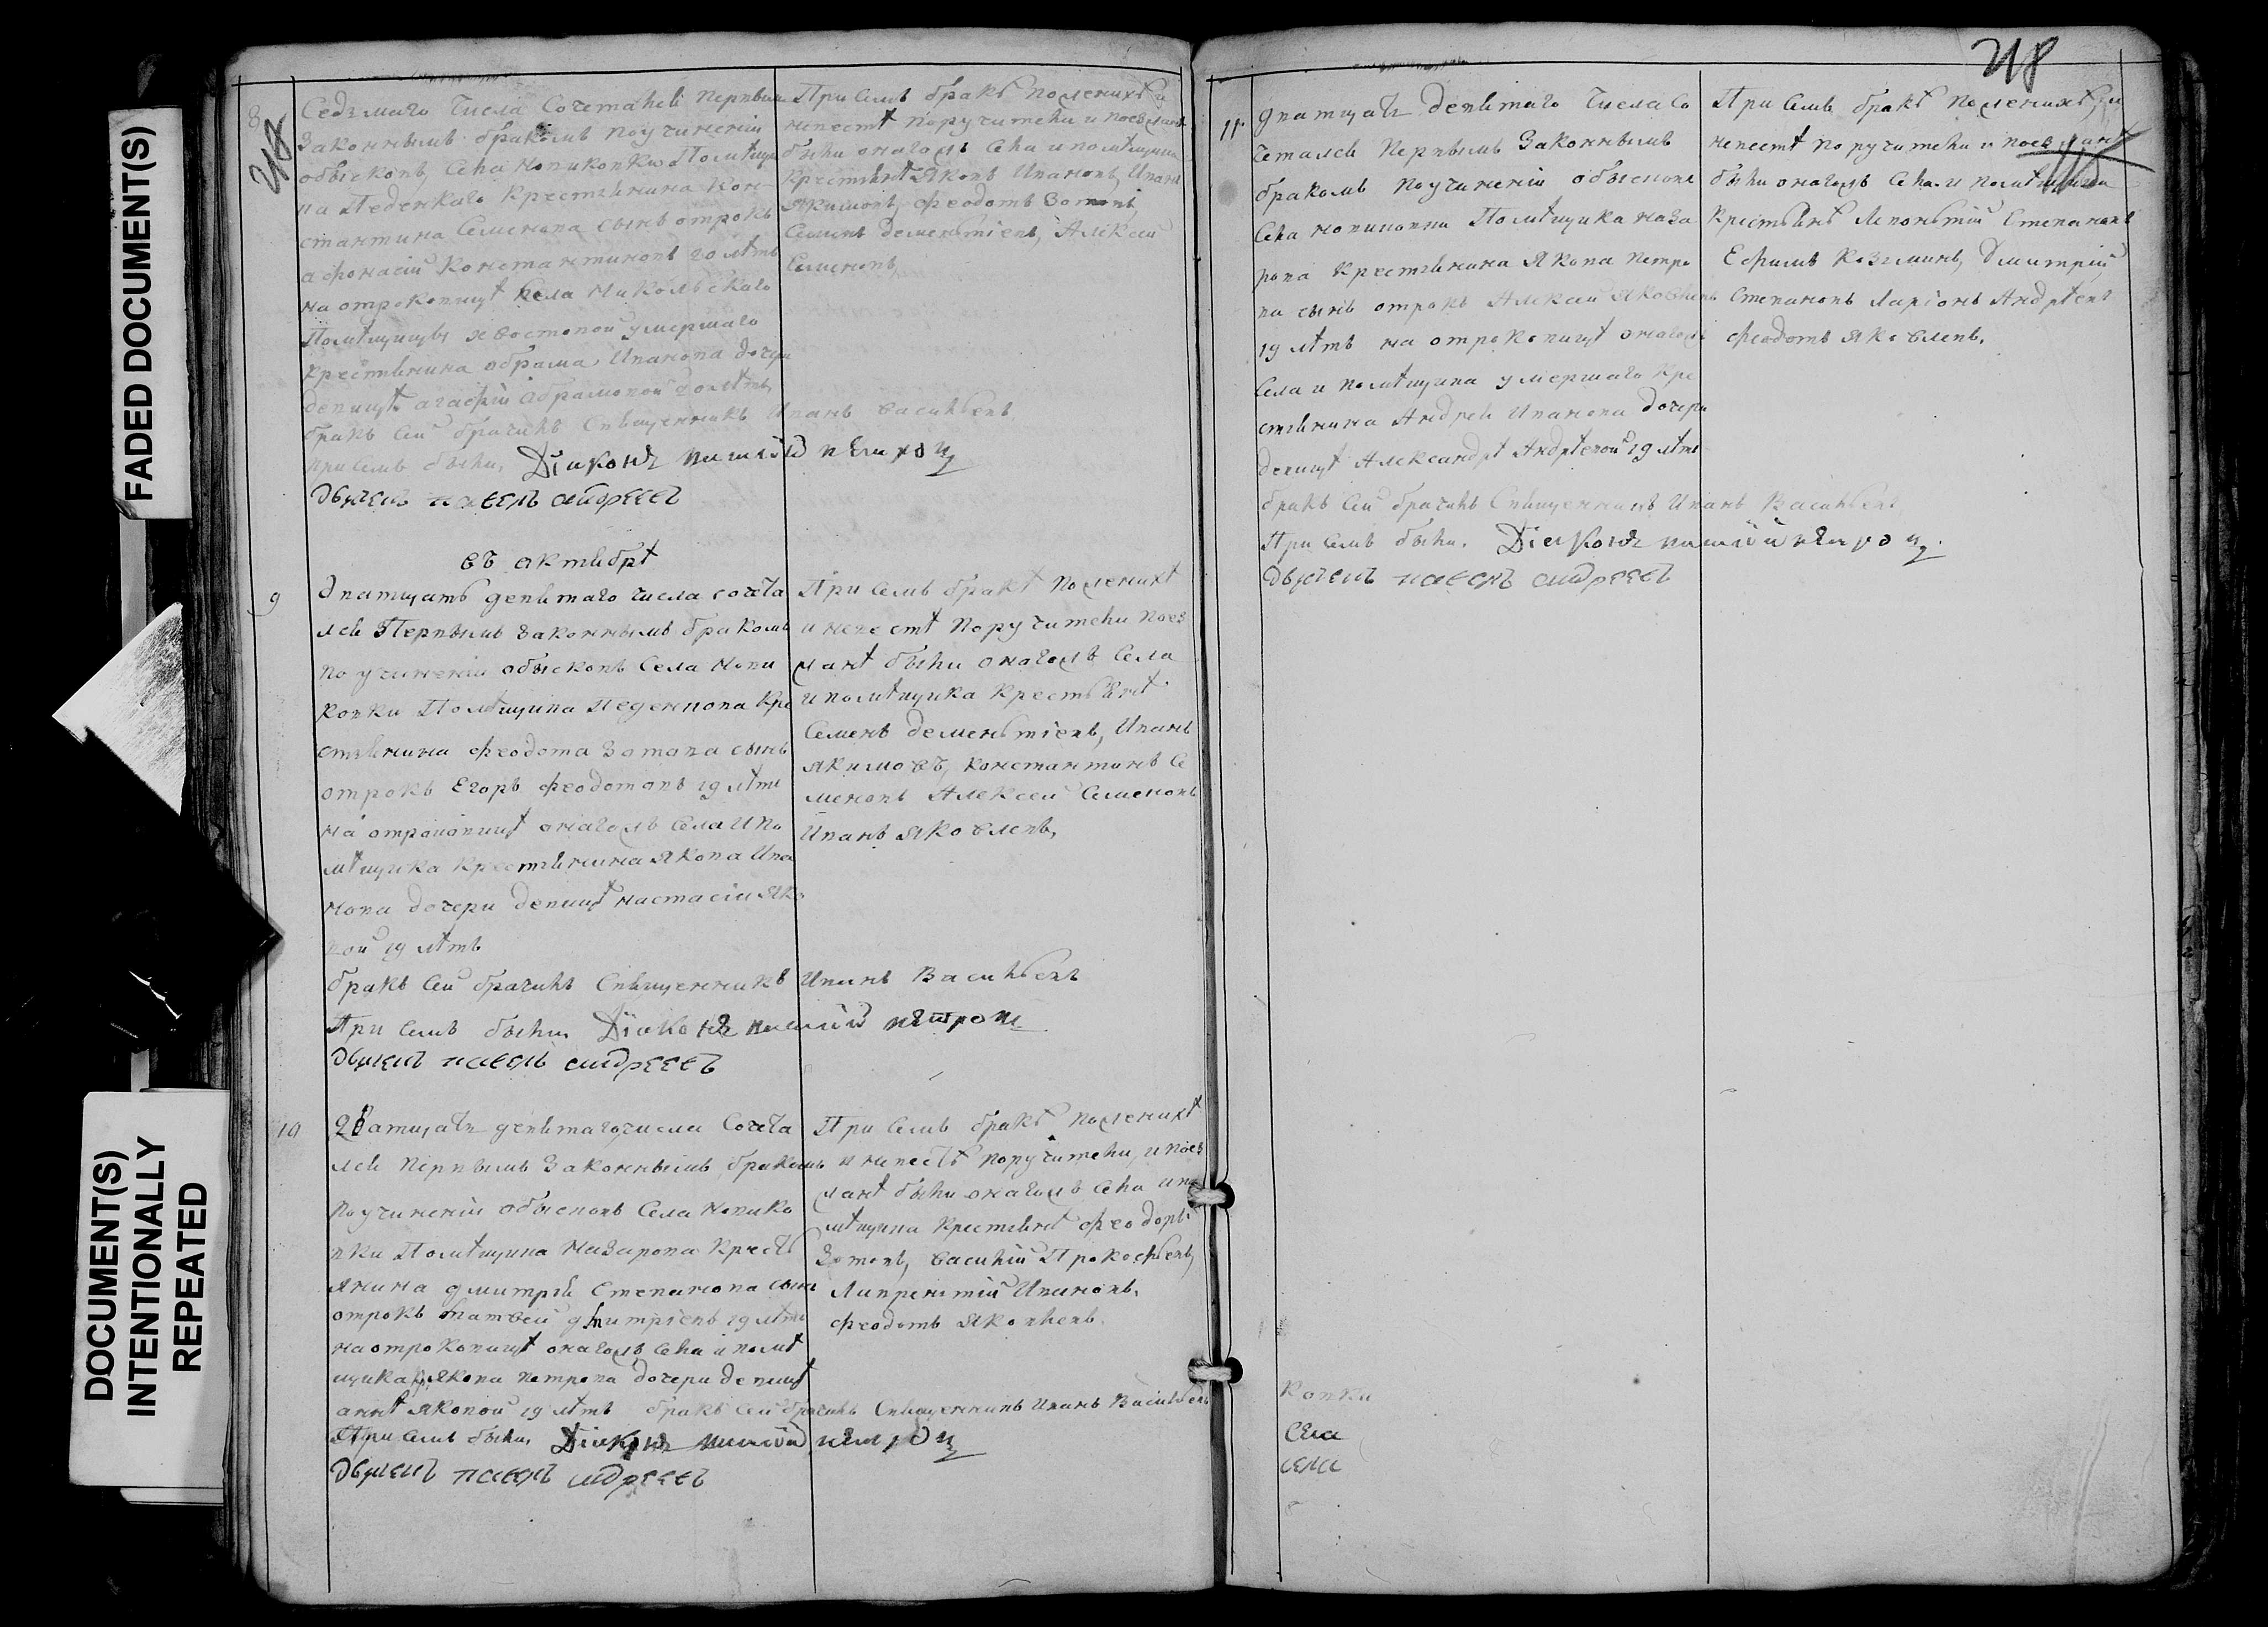 FADED DOCUMENT(S)
DOCUMENT(S)
INTENTIONALLY
REPEATED
8
Седьмаго Числа Сочетался первым
Законнымъ бракомъ по учинении
обысковъ, села новиковки Помѣщи
ка Крестьянина Кон
стантина Семенова сынъ отрокъ
афонасий Константиновъ 20 лѣтъ
на отроковицѣ села Никольскаго
Помѣщицы умершаго
крестьянина абрама Иванова дочери
девицѣ агафии абрамовой 20 лѣтъ
бракъ сей брачилъ Священникъ Иванъ Васильевъ
При семъ были, Дiаконъ петровъ
Дьячекъ павелъ андреевъ
При семъ бракѣ по женихѣ и
невестѣ поручители и поезжанѣ
были онагожъ села и помѣщика
Крестьянѣ Яковъ Ивановъ, Иванъ
Якимовъ, Феодотъ Зотовъ,
Семенъ дементиевъ, Алексей
Семеновъ,
въ октябрѣ
9
двацать девятаго числа сочета
лся Первымъ законнымъ бракомъ
по учинении обысковъ села нови
ковки Помѣщика Кре
стьянина феодота Зотова сынъ
отрокъ Егоръ феодотовъ 19 лѣтъ
на отроковицѣ онагожъ села и по
мѣщика крестьянина Якова Ива
нова дочери девицѣ настасiи Яко
вой 19 лѣтъ
бракъ сей брачилъ Священникъ Иванъ Васильевъ
При семъ были, Дiаконъ петровъ
Дьячекъ павелъ андреевъ
При семъ бракѣ по женихѣ
и невестѣ поручители поез
жанѣ были онагожъ села
и помѣщика крестьянѣ
Семенъ дементiевъ, Иванъ
якимовъ, константинъ Се
меновъ Алексей Семеновъ
Иванъ Яковлевъ,
10
двацать девятагочисла Сочета
лся первымъ Законнымъ бракомъ
по учинении обысковъ села новико
вки Помѣщика Назарова Кресть
янина дмитрия Степанова сынъ
отрокъ матвей дмитрiевъ 19 лѣтъ
на отроковицѣ онагожъ села и помѣ
щика якова петрова дочери девицѣ
аннѣ яковой 19 лѣтъ бракъ сей брачилъ Священникъ Иванъ Васильевъ
При семъ были, Дiаконъ петровъ
Дьячекъ павелъ андреевъ
При семъ бракѣ по женихѣ
и невестѣ поручители, и поез
жанѣ были онагожъ села и по
мѣщика крестьянѣ феодоръ
Зотовъ, василий Прокофьевъ,
Лаврентий Ивановъ,
феодотъ Яковлевъ.
218
11
двацать девятаго числа со
чтался Первымъ Законнымъ
бракомъ по учинении обысковъ
села новиковки Помѣщика наза
рова крестьянина Якова петро
ва сынъ отрокъ Алексей Яковлевъ
19 лѣтъ на отроковицѣ онагожъ
села и помѣщика умершаго кре
стьянина Андрея Иванова дочери
девицѣ Александрѣ Андрѣевой 19 лѣтъ
бракъ сей брачилъ Священникъ Иванъ Васильевъ
При семъ были. Дiаконъ петровъ.
Дьячекъ павелъ андреевъ
При семъ бракѣ по женихѣ, и
невестѣ поручители и поезжанѣ
были онагожъ села и помѣщика
крестьянѣ Леонтий Степановъ
Ефимъ Козьминъ, Дмитрий
Степановъ Ларiонъ Андрѣевъ
феодотъ Яковлевъ.
ковки
села
села